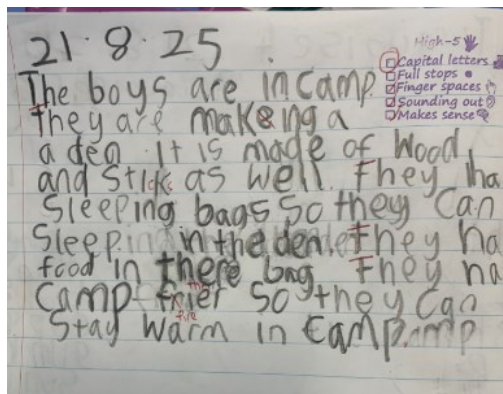 21.8.25
High-5
Capital letters
Full stops
Finger spaces
Sounding out
Makes sense
The boys are in camp
they are making a
a den. It is made of wood
and sticks as well. They ha
sleeping bags so they can
sleep in the den. They ha
food in there bag. They ha
camp frier so they can
fire
stay warm in camp.